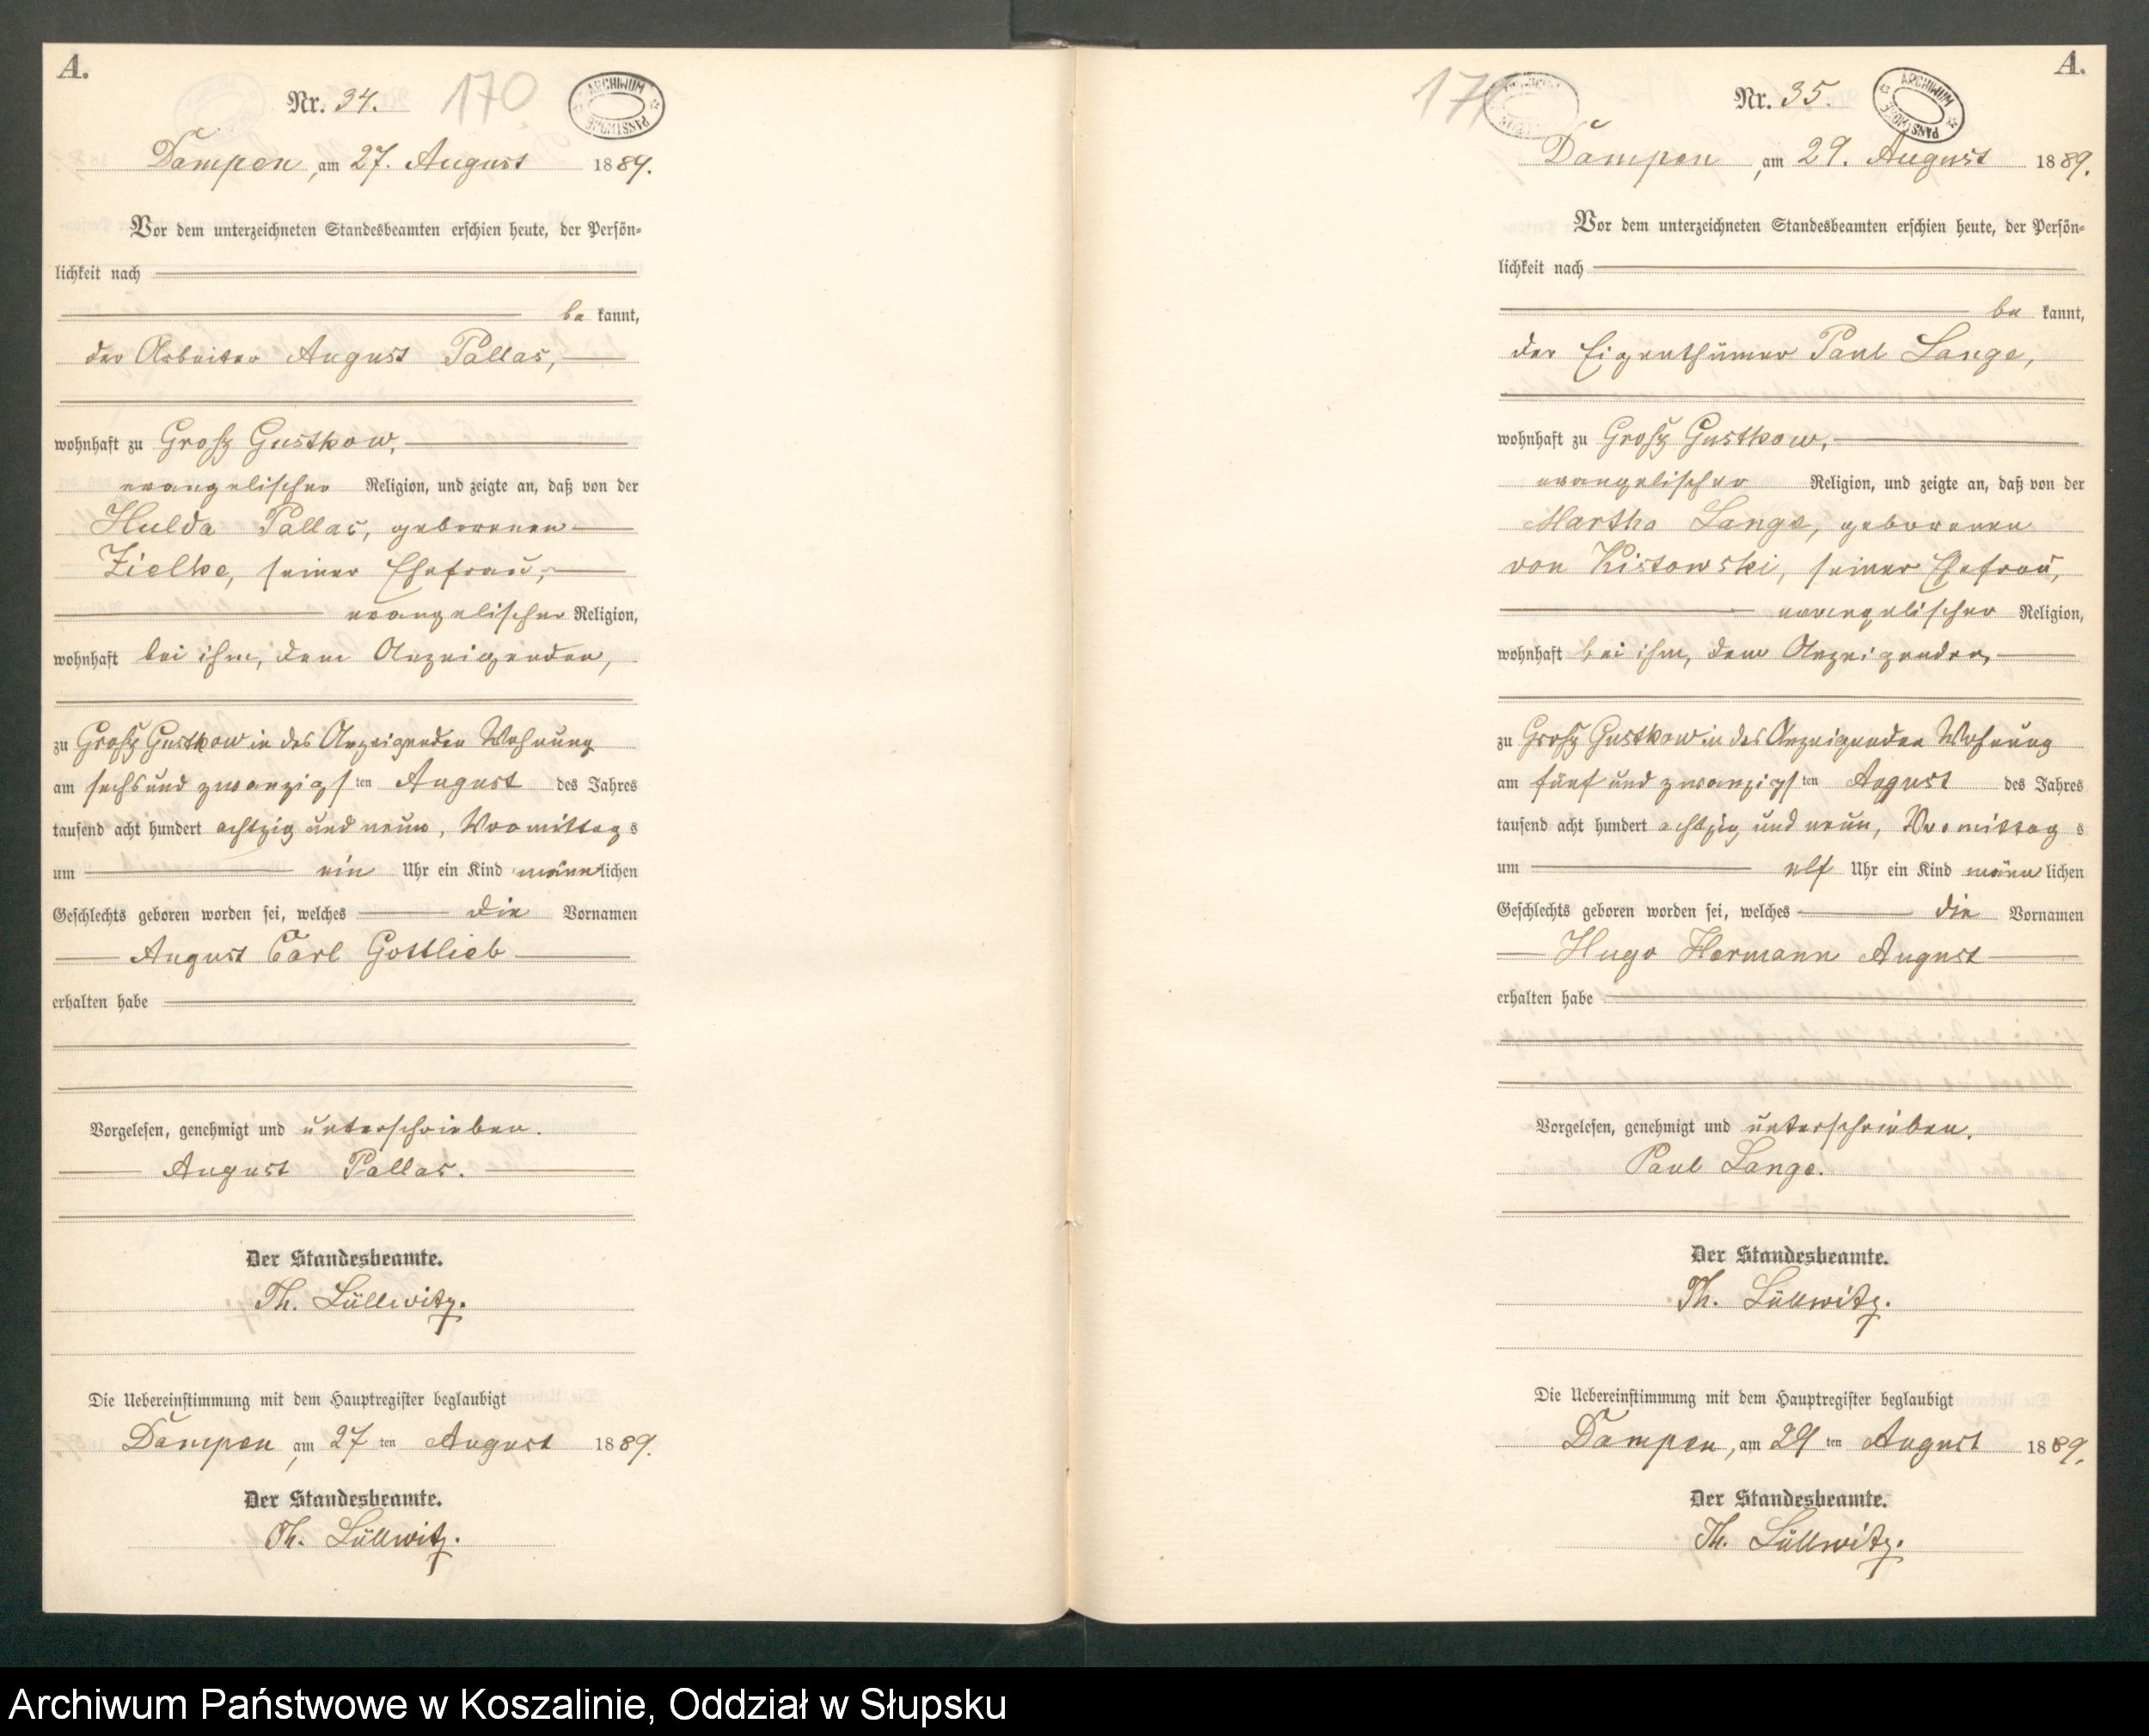 A.
Nr. 34. 170
ARCHIWUM PAŃSTWOWE
Dampen, am 27. August 1889.
Vor dem unterzeichneten Standesbeamten erschien heute, der Persön-
lichkeit nach
be kannt,
der Arbeiter August Pallas,
wohnhaft zu Groß Gustkow,
evangelischer Religion, und zeigte an, daß von der
Hulda Pallas, geborenen
Zielke, seiner Ehefrau,
evangelischer Religion,
wohnhaft bei ihm, dem Anzeigenden,
zu Groß Gustkow in des Anzeigenden Wohnung
am sechs und zwanzigsten August des Jahres
tausend acht hundert achtzig und neun, Vormittags
um ein Uhr ein Kind männlichen
Geschlechts geboren worden sei, welches die Vornamen
August Carl Gottlieb
erhalten habe
Vorgelesen, genehmigt und unterschrieben.
August Pallas.
Der Standesbeamte.
Th. Lüllwitz.
Die Uebereinstimmung mit dem Hauptregister beglaubigt
Dampen, am 27 ten August 1889.
Der Standesbeamte.
Th. Lüllwitz.
A.
171 Nr. 35.
ARCHIWUM PAŃSTWOWE
Dampen, am 29. August 1889.
Vor dem unterzeichneten Standesbeamten erschien heute, der Persön-
lichkeit nach
be kannt,
der Eigenthümer Paul Lange,
wohnhaft zu Groß Gustkow,
evangelischer Religion, und zeigte an, daß von der
Martha Lange, geborenen
von Kistowski, seiner Ehefrau,
evangelischer Religion,
wohnhaft bei ihm, dem Anzeigenden,
zu Groß Gustkow in des Anzeigenden Wohnung
am fünf und zwanzigsten August des Jahres
tausend acht hundert achtzig und neun, Vormittags
um elf Uhr ein Kind männlichen
Geschlechts geboren worden sei, welches die Vornamen
Hugo Hermann August
erhalten habe
Vorgelesen, genehmigt und unterschrieben.
Paul Lange.
Der Standesbeamte.
Th. Lüllwitz.
Die Uebereinstimmung mit dem Hauptregister beglaubigt
Dampen, am 29 ten August 1889.
Der Standesbeamte.
Th. Lüllwitz.
Archiwum Państwowe w Koszalinie, Oddział w Słupsku